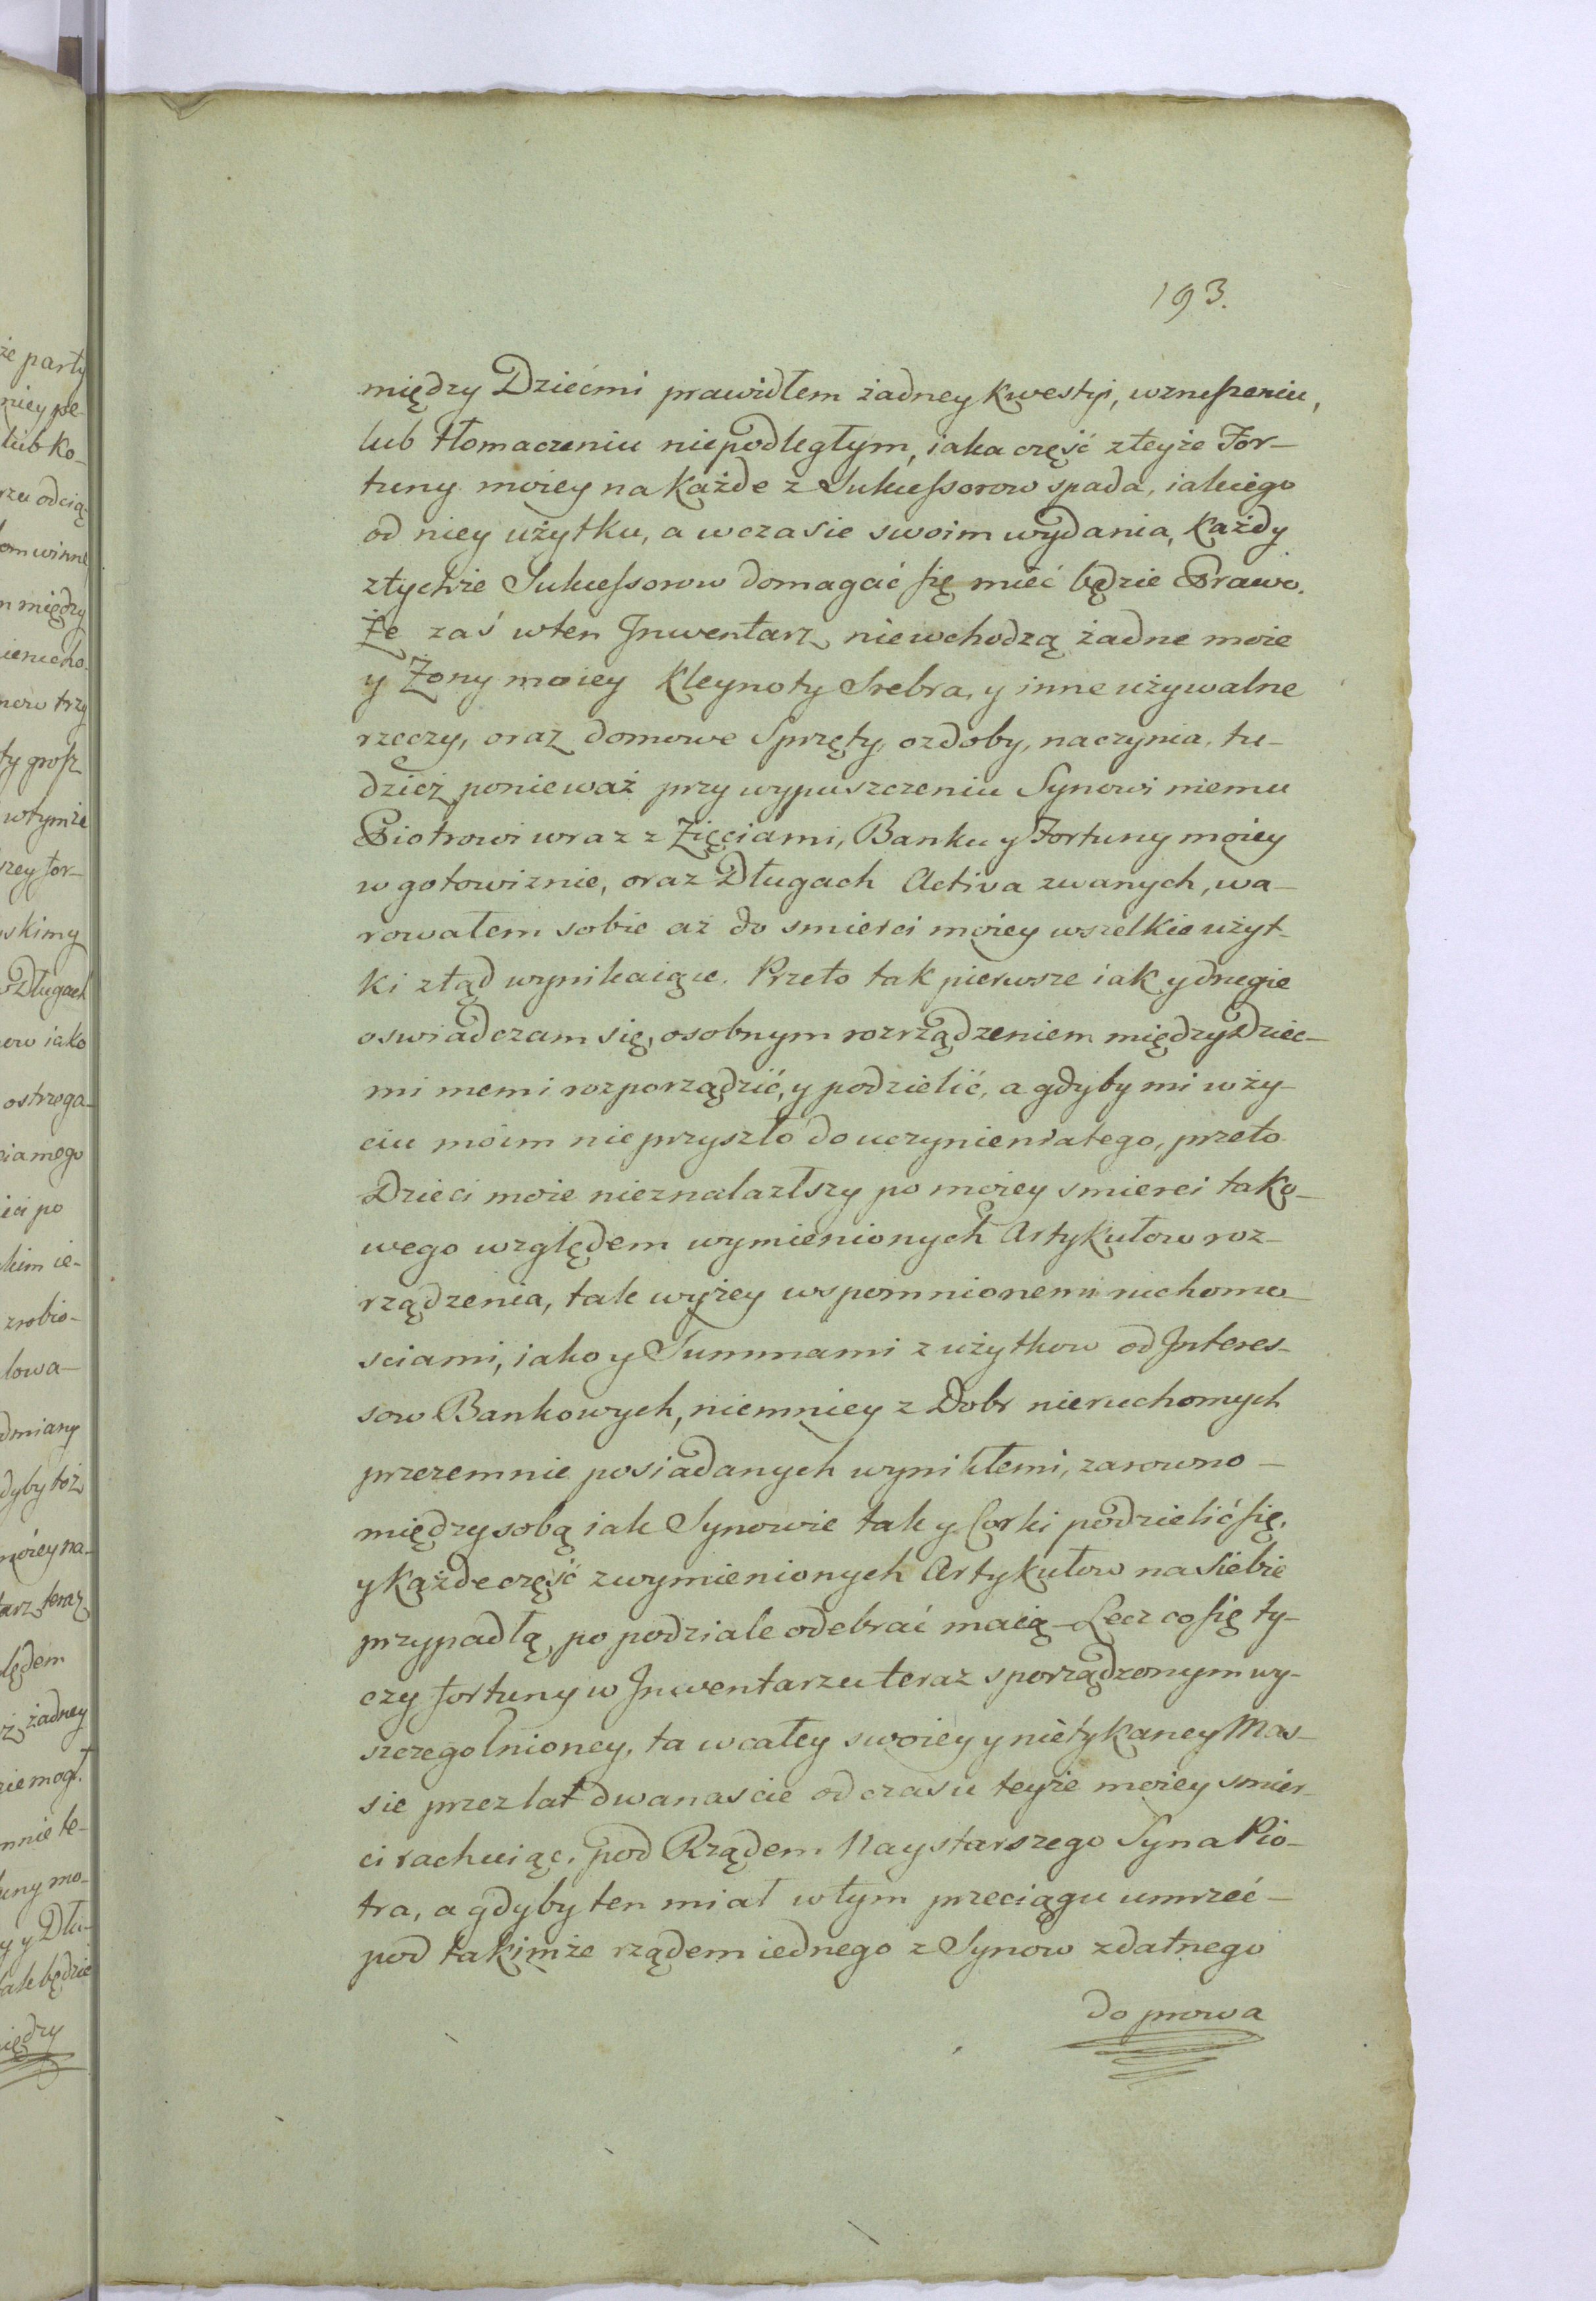 193.
między Dziećmi prawidłem żadney kwestyi, wzruszeniu,
lub tłomaczeniu niepodległym, iaka część zteyże For-
tuny moiey na każde z Sukcessorow spada, iakiego
od niey użytku, a wczasie swoim wydania, każdy
ztychże Sukcessorow domagać się mieć będzie Prawo.
Że zaś wten Jnwentarz niewchodzą żadne moie
y Żony moiey Kleynoty Srebra, y inne używalne
rzeczy, oraz domowe Sprzęty, ozdoby, naczynia, tu-
dzież ponieważ przy wypuszczeniu Synowi memu
Piotrowi wraz z Zięciami, Banku y Fortuny moiey
w gotowiznie, oraz Długach Activa zwanych, wa-
rowałem sobie aż do smierci moiey wszelkie użyt-
ki ztąd wynikaiące. Przeto tak pierwsze iak y drugie
oswiadczam się, osobnym rozrządzeniem między Dziec-
mi memi rozporządzić, y podzielić, a gdyby mi w ży-
ciu moim nie przyszło do uczynienia tego, przeto
Dzieci moie nieznalazłszy po moiey smierci tako-
wego względem wymienionych Artykułow roz-
rządzenia, tak wyżey wspomnionemi ruchomo-
sciami, iako y Summami z użytkow od Jnteres-
sow Bankowych, niemniey z Dobr nieruchomych
przezemnie posiadanych wynikłemi, zarowno -
między sobą iak Synowie tak y Corki podzielić się,
y każde część zwymienionych Artykułow na siebie
przypadłą, po podziale odebrać maią - Lecz co się ty-
czy fortuny w Jnwentarzu teraz sporządzonym wy-
szczegolnioney, ta w całey swoiey y nietykaney Mas-
sie przez lat dwanascie od czasu teyże moiey smier-
ci rachuiąc, pod Rządem Naystarszego Syna Pio-
tra, a gdyby ten miał w tym przeciągu umrzeć -
pod takimże rządem iednego z Synow zdatnego
do prowa